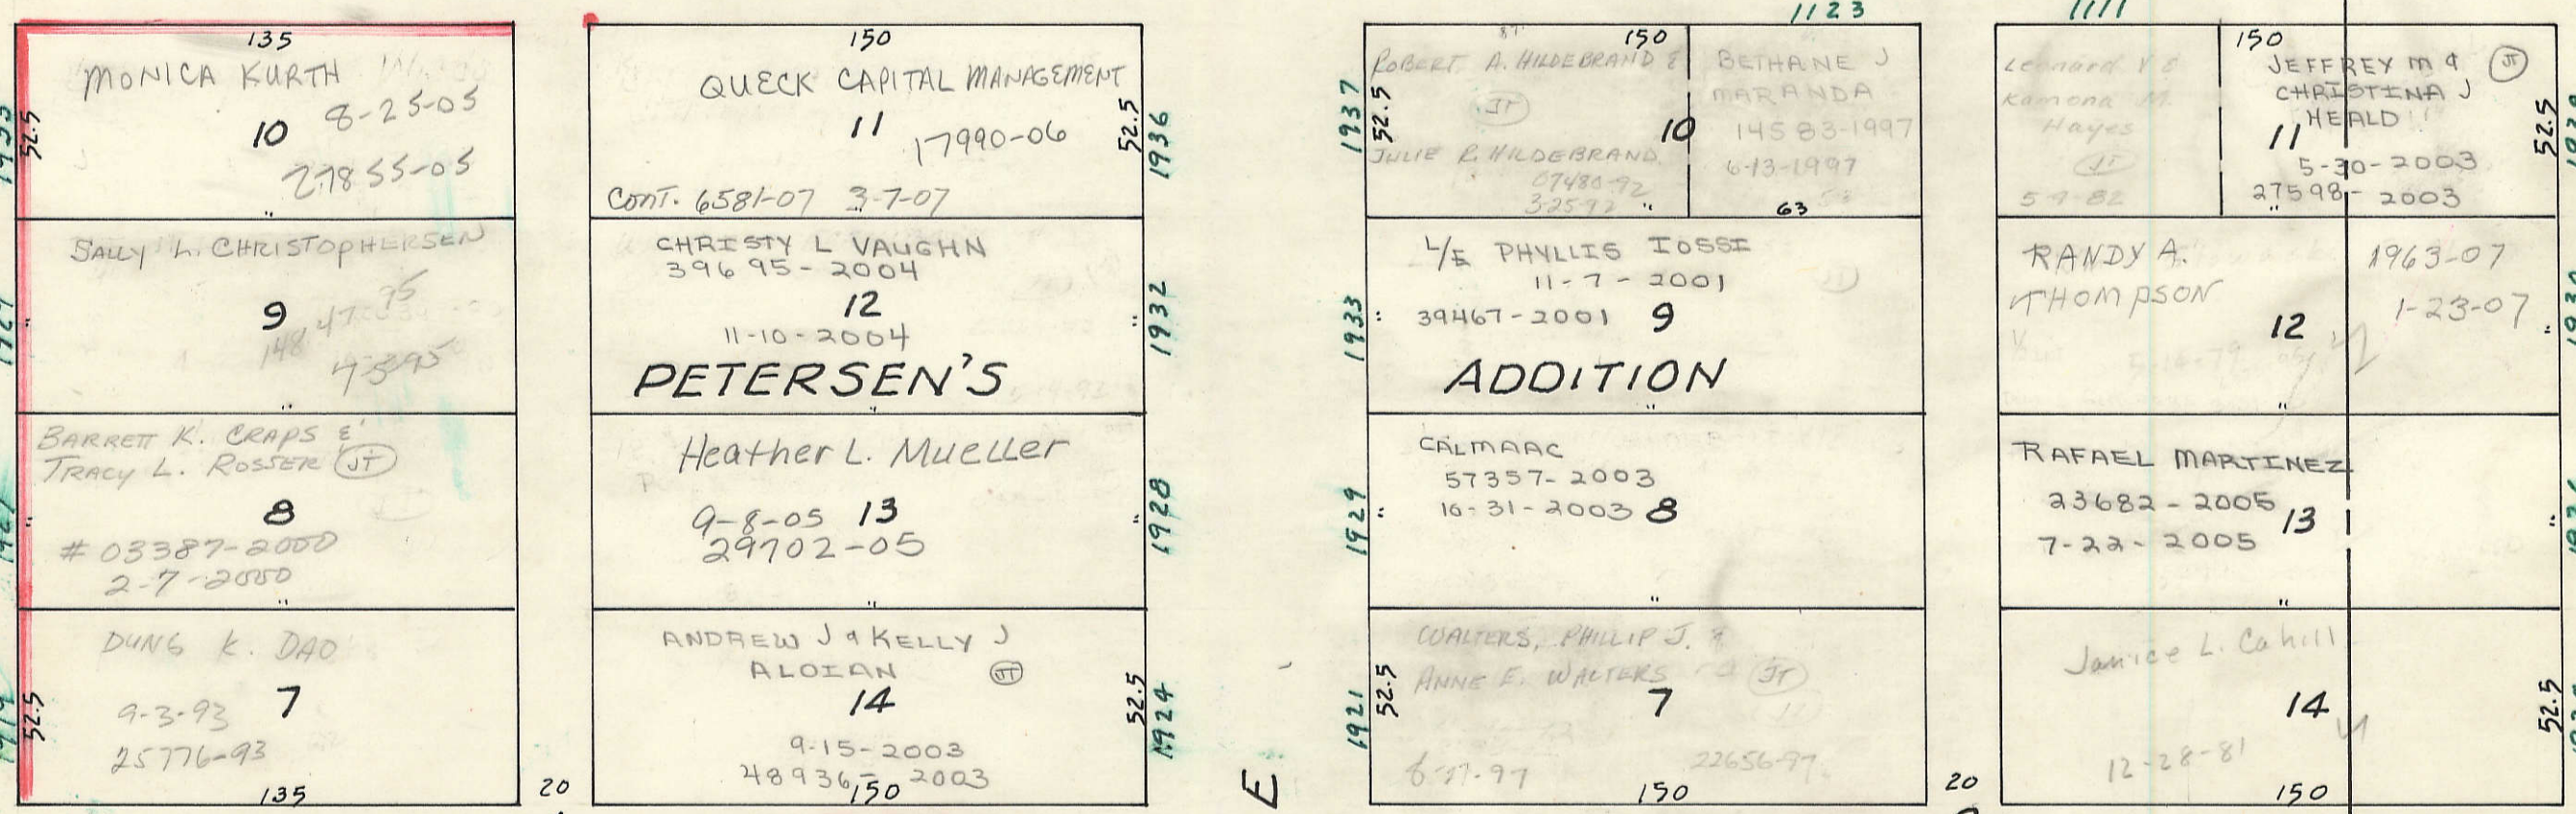 1123
1111
135
MONICA KURTH
8-25-05
10
27855-05
52.5
"
SALLY L. CHRISTOPHERSEN
9
"
"
BARRETT K. CRAPS &
TRACY L. ROSSER JT
8
"
# 03387-2000
2-7-2000
"
DUNG K. DAO
9-3-93
7
25776-93
52.5
135
20
150
QUECK CAPITAL MANAGEMENT
11
17990-06
52.5
1936
CONT. 6581-07 3-7-07
"
CHRISTY L VAUGHN
39695-2004
12
11-10-2004
"
1932
PETERSEN'S
"
Heather L. Mueller
9-8-05 13
29702-05
"
1928
"
ANDREW J & KELLY J
ALOIAN JT
14
9-15-2003
48936-2003
52.5
1924
150
E
1937
52.5
150
ROBERT A. HILDEBRAND &
JT
10
JULIE R. HILDEBRAND
07480-92
3-25-92
"
BETHANE J
MARANDA
14583-1997
6-13-1997
63
1933
"
L/E PHYLLIS IOSSI
11-7-2001
39467-2001 9
ADDITION
"
1929
"
CALMAAC
57357-2003
10-31-2003 8
"
1921
52.5
WALTERS, PHILLIP J. &
ANNE E. WALTERS JT
7
22656-97
150
20
Leonard V &
Ramona M.
Hayes
JT
5-9-82
150
JEFFREY M & JT
CHRISTINA J
HEALD
11
5-30-2003
27598-2003
52.5
"
RANDY A.
THOMPSON
1963-07
1-23-07
12
"
"
RAFAEL MARTINEZ
23682-2005
13
7-22-2005
"
"
Janice L. Cahill
14
12-28-81
52.5
150